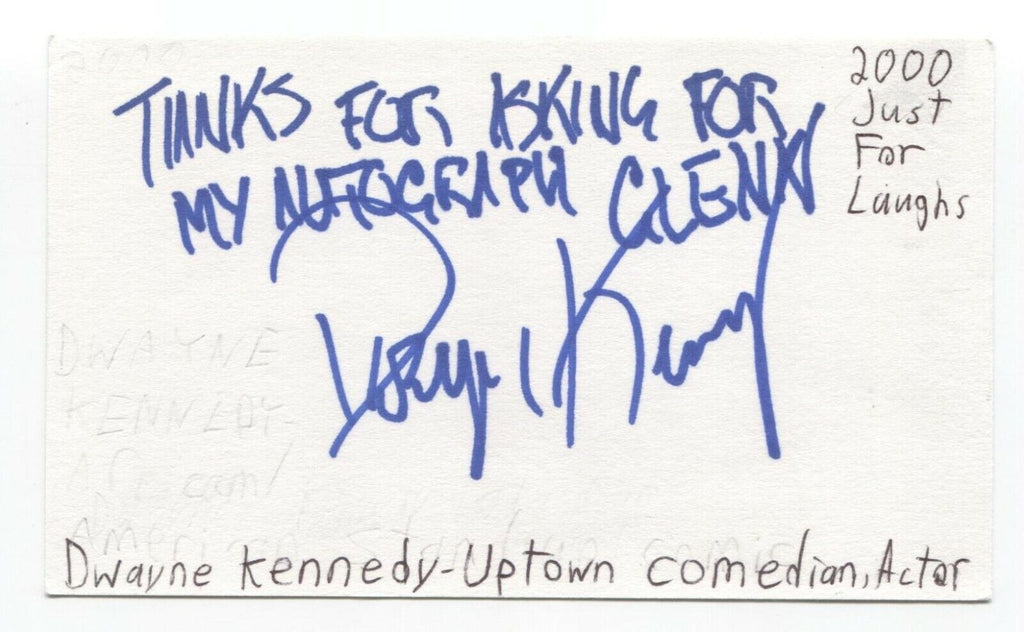 TANKS FOR ASKING FOR
MY AUTOGRAPH GLENN
2000
Just
For
Laughs
DWAYNE
KENNEDY-
American Standup comic
Dwayne Kennedy-Uptown comedian, Actor